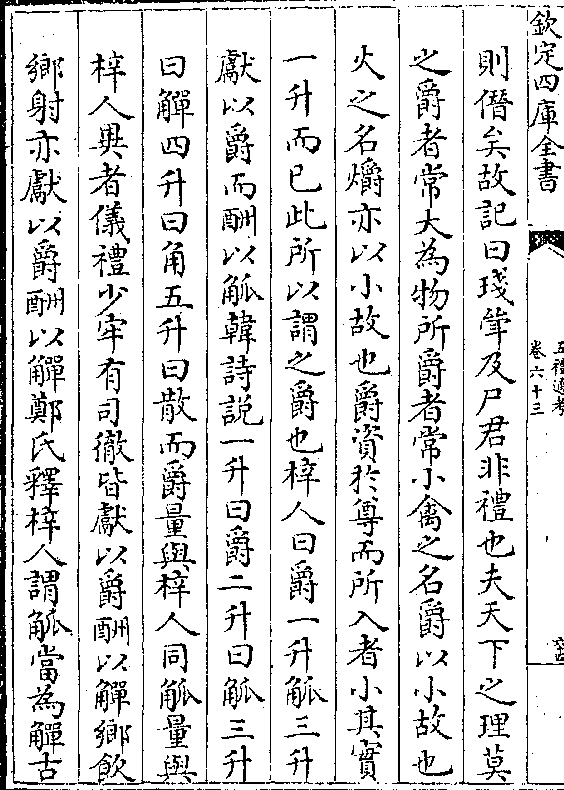 欽定四庫全書
五禮通考
卷六十三
則僭矣故記曰琖斝及尸君非禮也夫天下之理莫
之爵者常大為物所爵者常小禽之名爵以小故也
火之名爝亦以小故也爵資於尊而所入者小其實
一升而已此所以謂之爵也梓人曰爵一升觚三升
獻以爵而酬以觚韓詩説一升曰爵二升曰觚三升
曰觶四升曰角五升曰散而爵量與梓人同觚量與
梓人異者儀禮少牢有司徹皆獻以爵酬以觶鄉飲
鄉射亦獻以爵酬以觶鄭氏釋梓人謂觚當為觶古